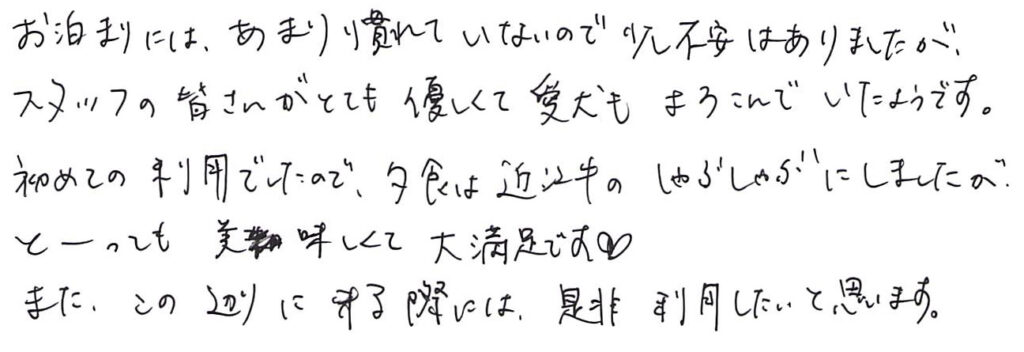 お泊まりには、あまり慣れていないので少し不安はありましたが、
スタッフの皆さんがとても優しくて愛犬もよろこんでいたようです。
初めての利用でしたので、夕食は近江牛のしゃぶしゃぶにしましたが、
とーっても美味しくて大満足です♡
また、この辺りに来る際には、是非利用したいと思います。